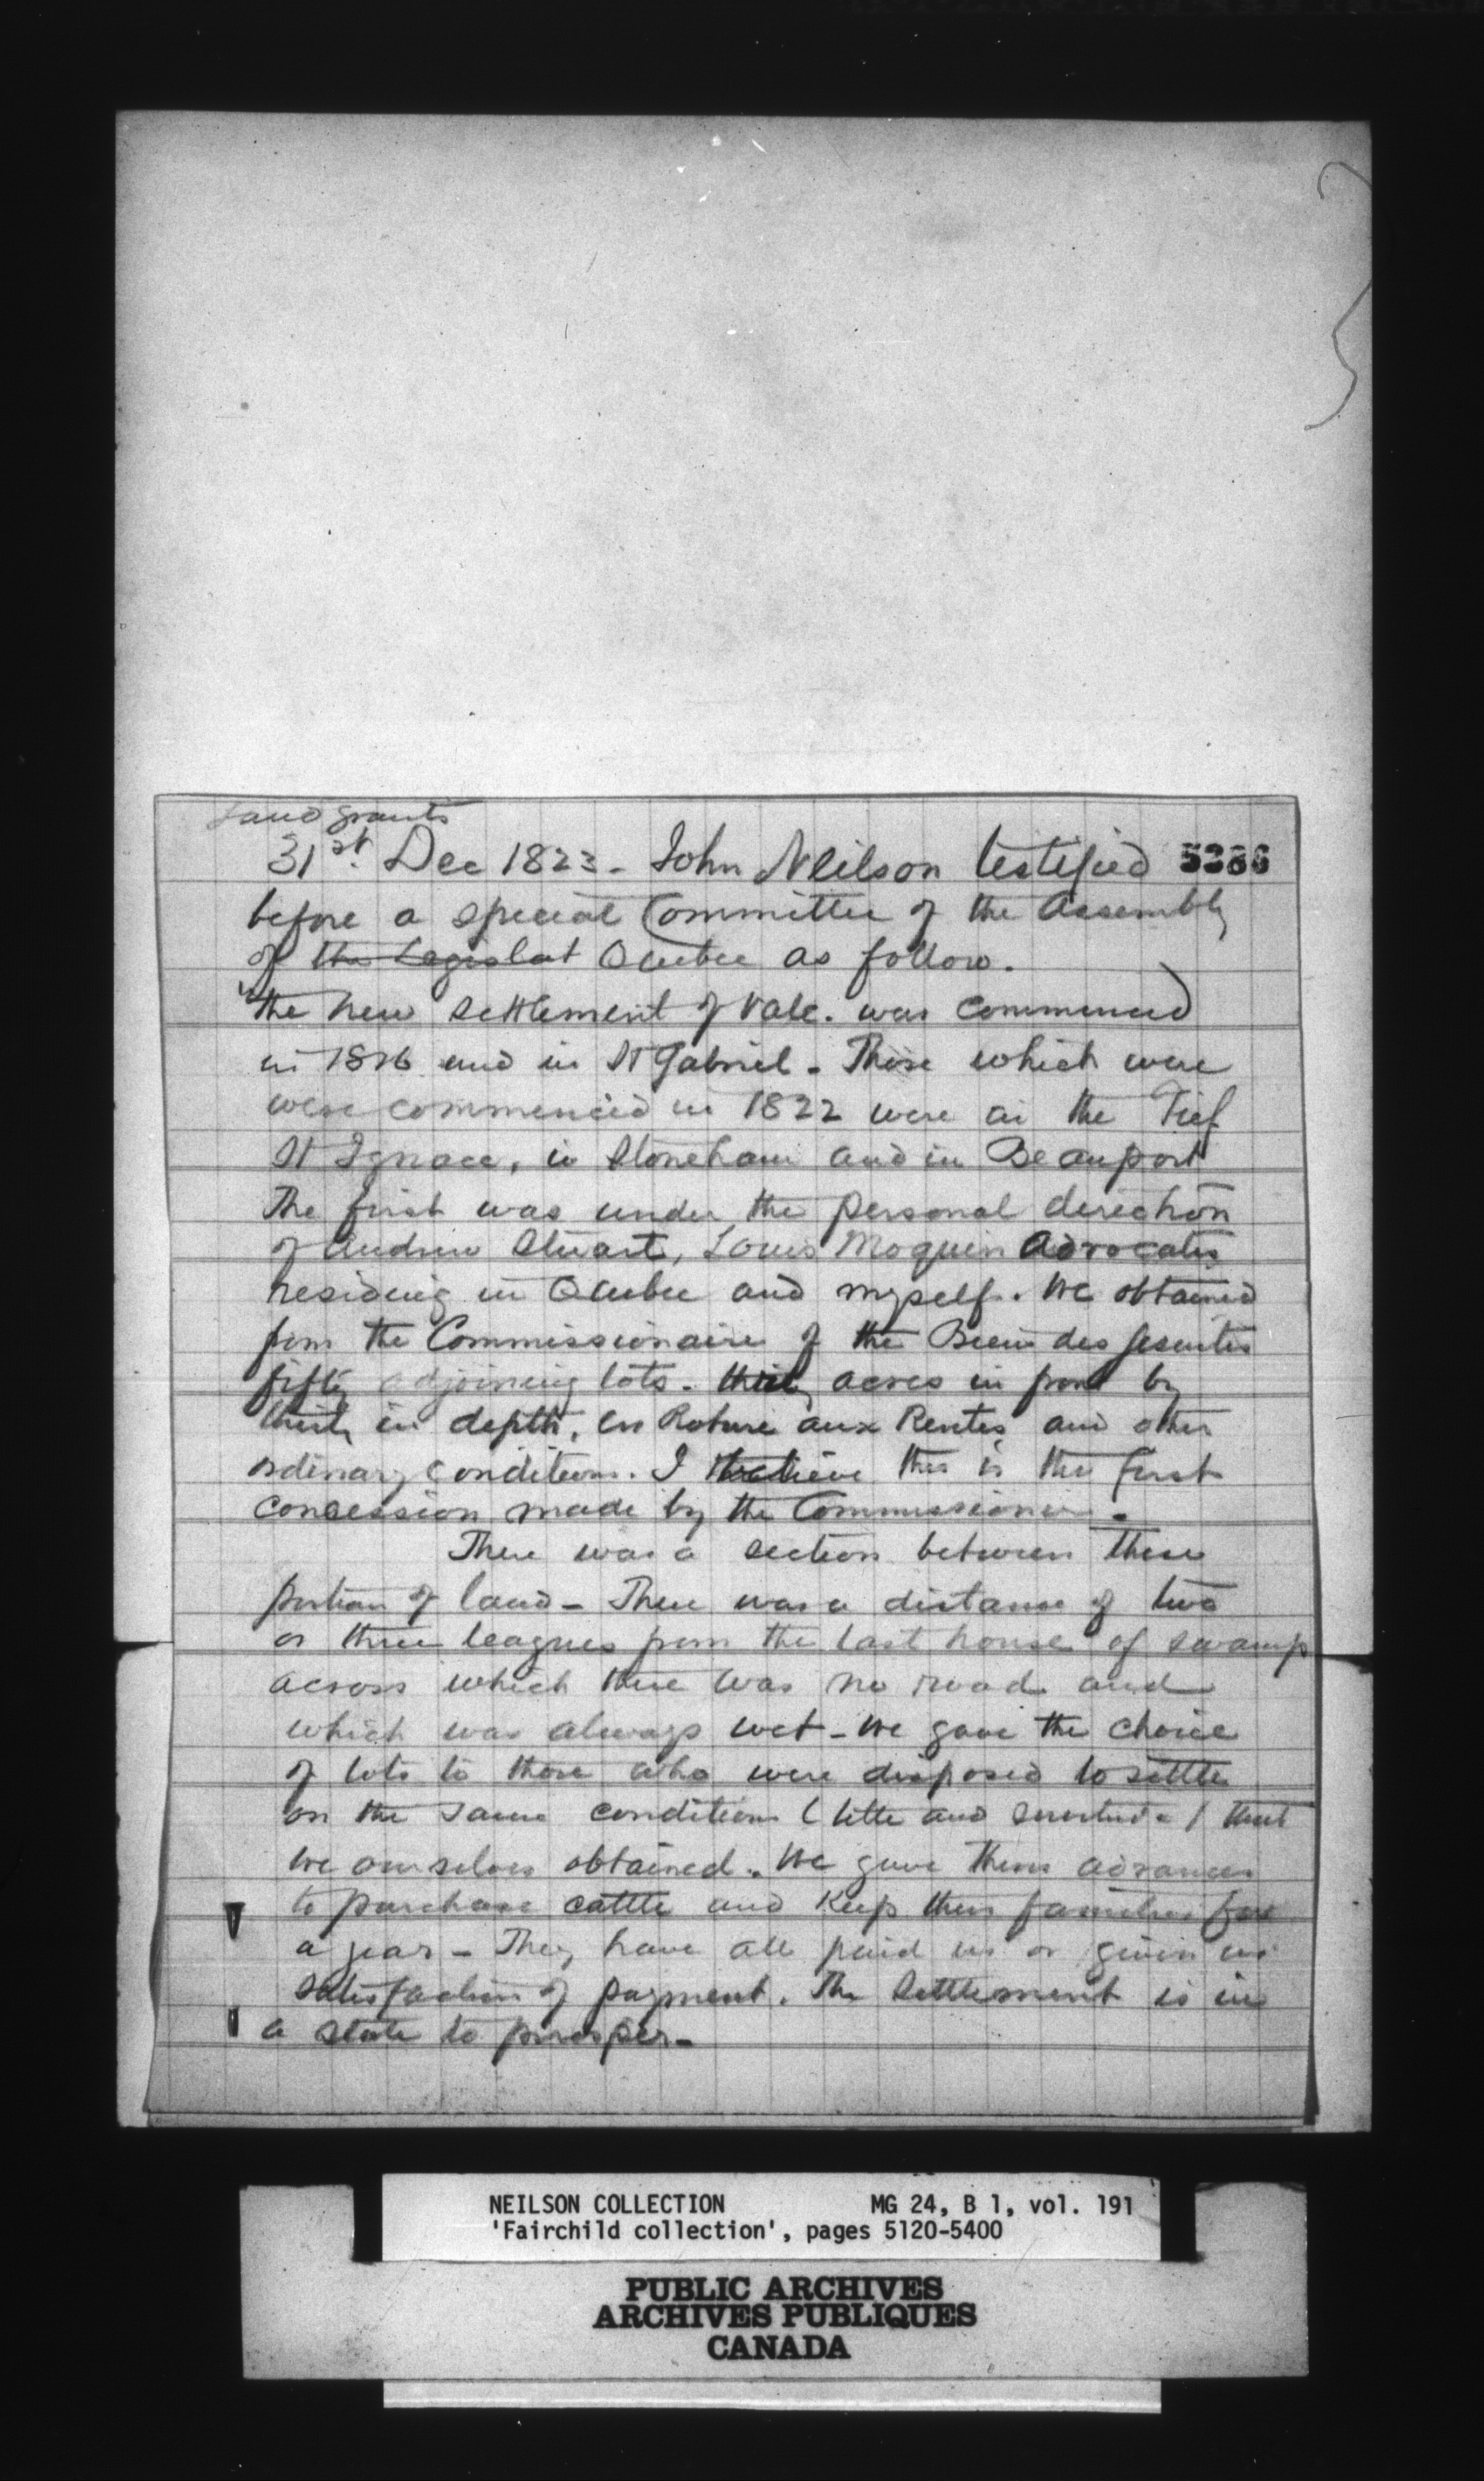 Land grants
31st. Dec 1823 - John Neilson testified 5386
before a special Committee of the Assembly
of the Legislat Quebec as follow.
"the new settlement of Valc. was commenced
in 1816 and in St Gabriel - Those which were
were commenced in 1822 were in the Fief
St Ignace, in Stoneham and in Beauport
The first was under the personal direction
of Andrew Stuart, Louis Moquin Advocates
residing in Quebec and myself. We obtained
from the Commissionaire of the Biens des Jesuites
fifty adjoining lots - thirty acres in front by
thirty in depth, en Roture aux Rentes and other
ordinary conditions. I believe this is the first
concession made by the Commissioner.
There was a section between these
portion of land - There was a distance of two
or three leagues from the last house of swamp
across which there was no road and
which was always wet - We gave the choice
of lots to those who were disposed to settle
on the same conditions ( title and servitude ) that
we ourselves obtained. We gave them advances
to purchase cattle and keep their families for
a year - They have all paid us or given us
satisfaction of payment. The settlement is in
a state to prosper -
NEILSON COLLECTION MG 24, B 1, vol. 191
'Fairchild collection', pages 5120-5400
PUBLIC ARCHIVES
ARCHIVES PUBLIQUES
CANADA